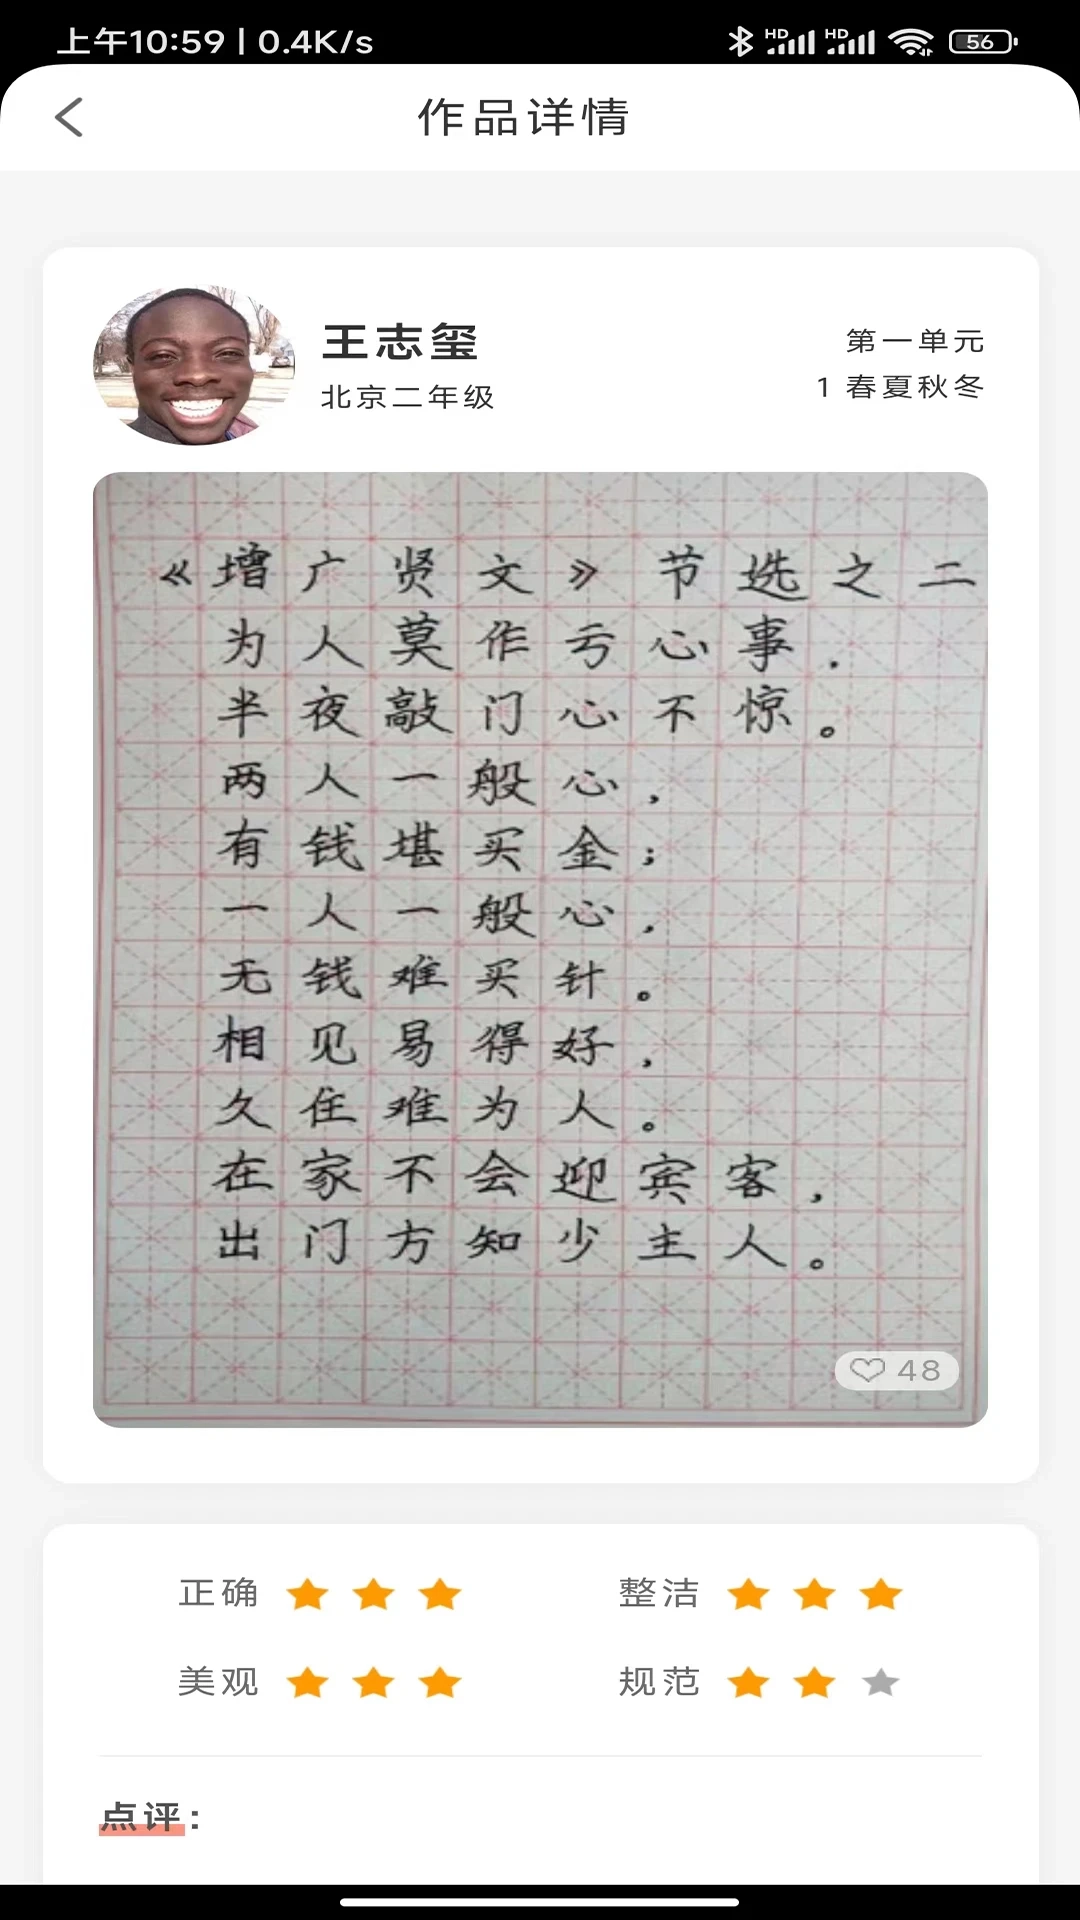 上午10:59 | 0.4K/s
HD HD 56
作品详情
王志玺
北京二年级
第一单元
1 春夏秋冬
《增广贤文》节选之二
为人莫作亏心事.
半夜敲门心不惊。
两人一般心,
有钱堪买金;
一人一般心,
无钱难买针。
相见易得好,
久住难为人。
在家不会迎宾客,
出门方知少主人。
48
正确
整洁
美观
规范
点评: